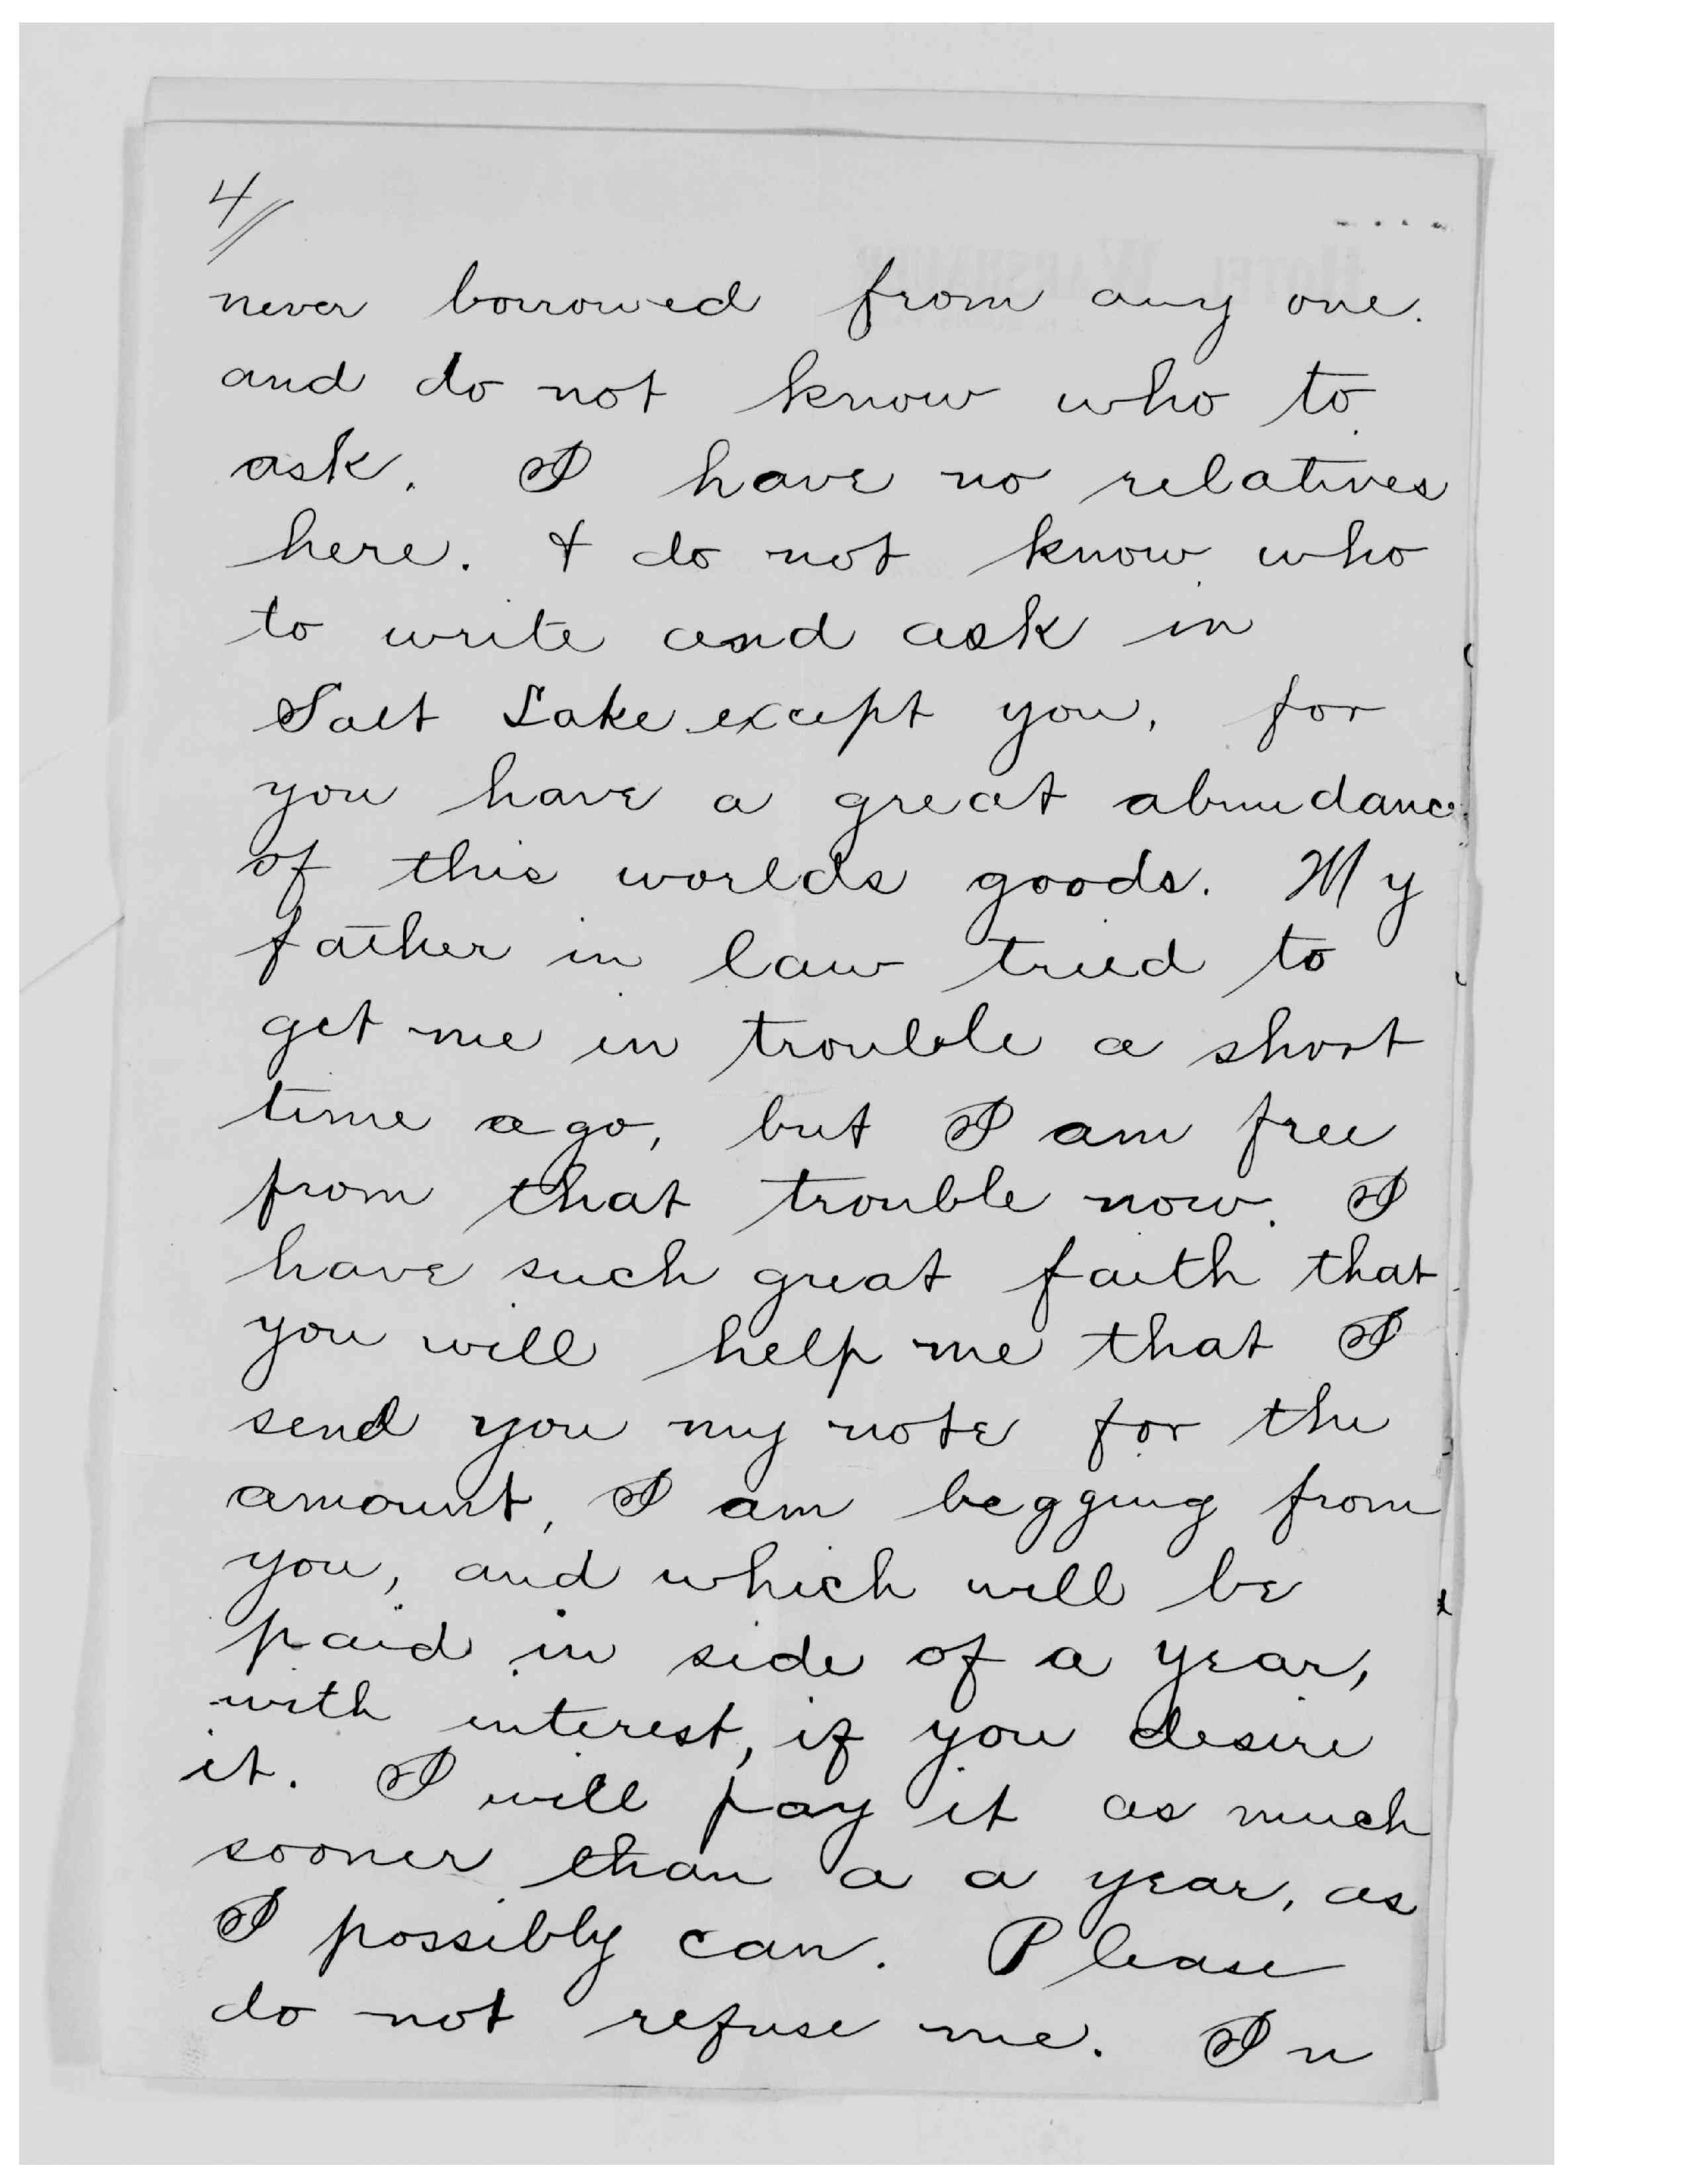 4//
never borrowed from any one.
and do not know who to
ask. I have no relatives
here. & do not know who
to write and ask in
Salt Lake except you, for
you have a great abundance
of this worlds goods. My
father in law tried to
get me in trouble a short
time ago, but I am free
from that trouble now. I
have such great faith that
you will help me that I
send you my note for the
amount, I am begging from
you, and which will be
paid in side of a year,
with interest, if you desire
it. I will pay it as much
sooner than a a year, as
I possibly can. Please
do not refuse me. In